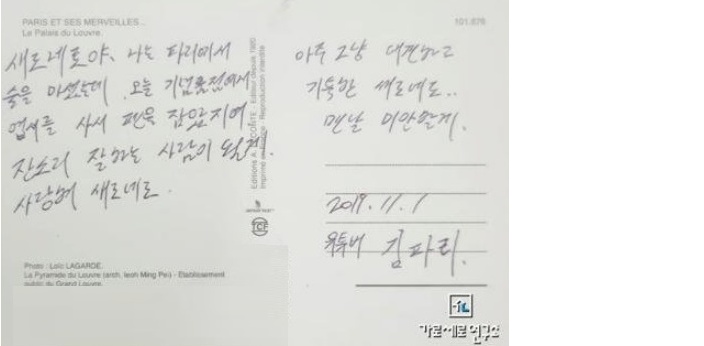 PARIS ET SES MERVEILLES...
Le Palais du Louvre.
101.876
새로네로야, 나는 파리에서
술을 마셨는데 오늘 기념품점에서
엽서를 사서 펜을 잡았지예
잔소리 잘하는 사람이 될게.
사랑해 새로네로.
아주 그냥 대견하고
기특한 새로네로..
맨날 미안할게.
2019.11.1
유튜버 김파리.
Editions A. LECONTE - Editeur depuis 1920
Reproduction interdite
TCF
Photo : Loïc LAGARDE.
La Pyramide du Louvre (arch. Ieoh Ming Pei) - Etablissement
public du Grand Louvre.
가로세로연구소